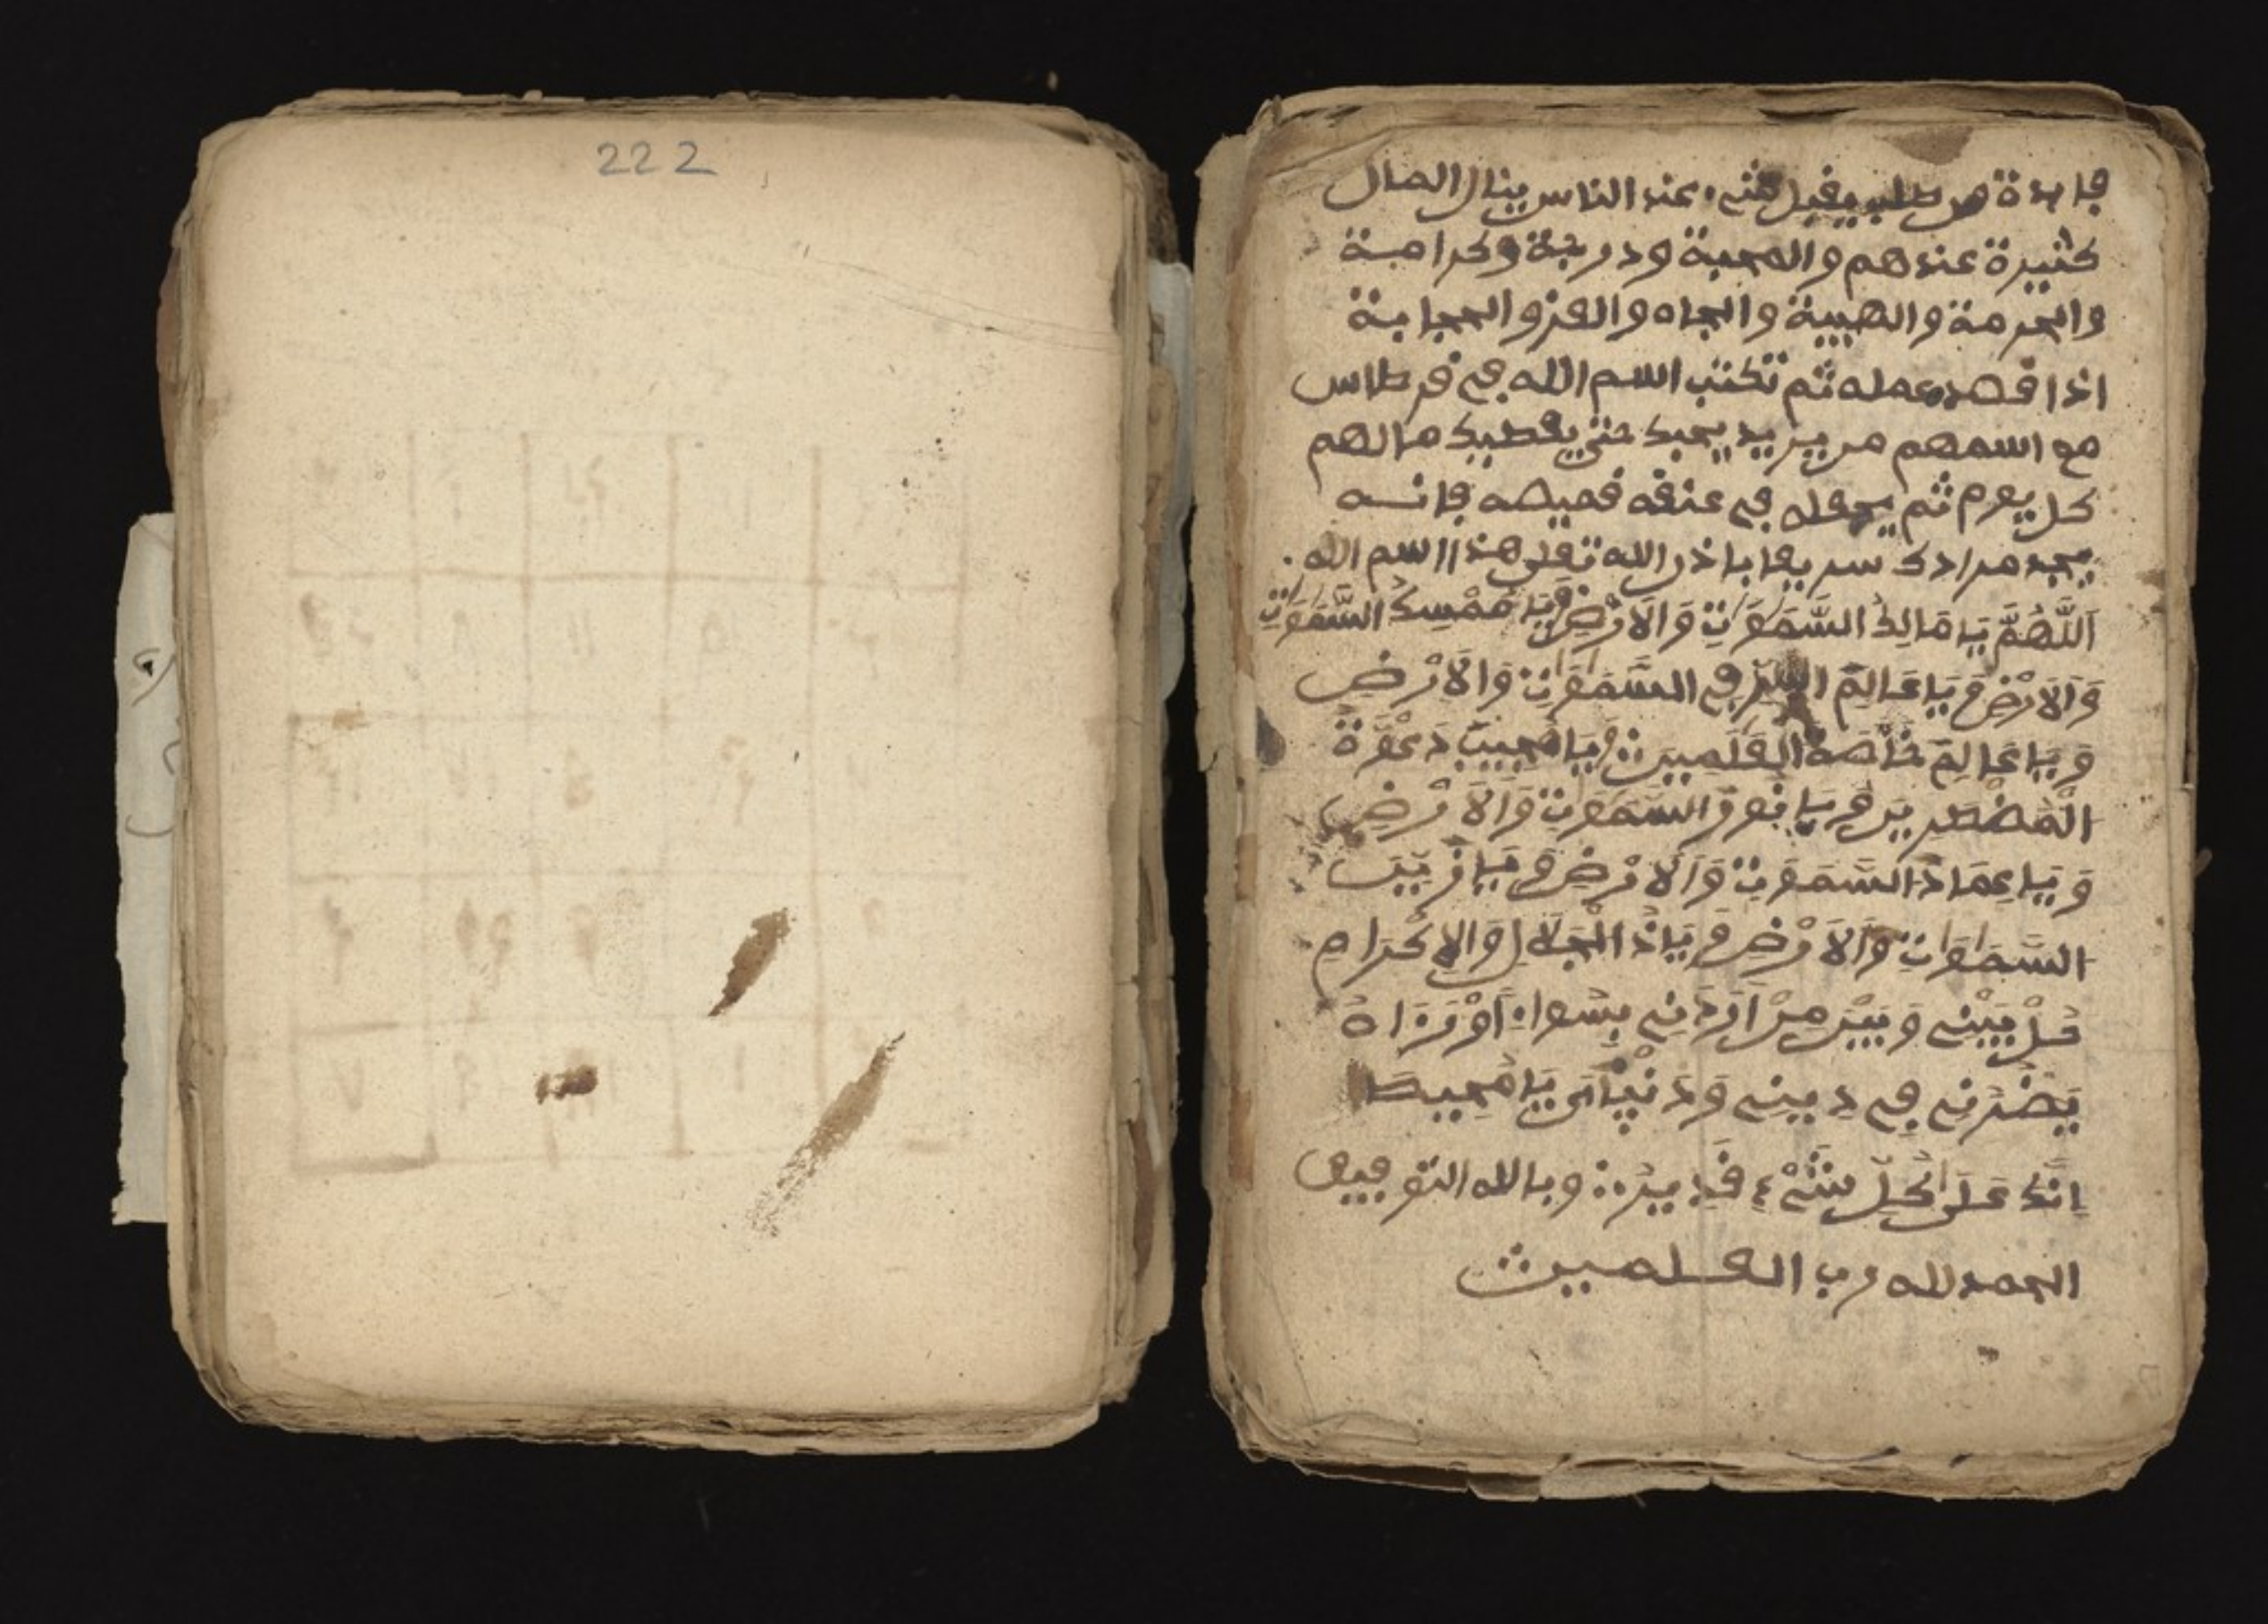 222
فايدة من طلب يقبل منه عند الناس ينال المال
كثيرة عندهم والمحبة ودرجة وكرامة
والحرمة والهيبة والجاه والعز والحجابة
اذا قصد عمله ثم تكتب اسم الله في قرطاس
مع اسمهم من يريد يحبك حتى يعطيك مالهم
كل يوم ثم يجعله في عنقه قميصه فانه
يجد مرادك سريعا باذن الله تعلى هذا اسم الله
اَللَّهُمَّ يَا مَالِكَ السَّمَوَاتِ وَالَارْضِ وَيَا مُمْسِكَ السَّمَوَاتِ
وَالَارْضِ وَيَا عَالِمَ السِّرِّ فِي السَّمَوَاتِ وَالَارْضِ
وَيَا عَالِمَ الْعَلَمِينَ وَيَا مُجِيبَ دَعْوَةَ
الْمُضْطَرِّينَ وَيَا نُورَ السَّمَوَاتِ وَالَارْضِ
وَيَا عِمَادَ السَّمَوَاتِ وَالَارْضِ وَيَا زَيْنَ
السَّمَوَاتِ وَالَارْضِ وَيَا ذَا الْجَلَالِ وَالِاكْرَامِ
حُلْ بَيْنِي وَبَيْنَ مَنْ اَرَادَنِي بِسُواءٍ اَوْ مَنْ اَرَاهُ
يَضُرُّنِي فِي دِينِي وَدُنْيَآىَ يَا مُحِيطَ
اِنَّكَ عَلَى كُلِّ شَيْءٍ قَدِيرٌ وبالله التوفيق
الحمد لله رب العلمين